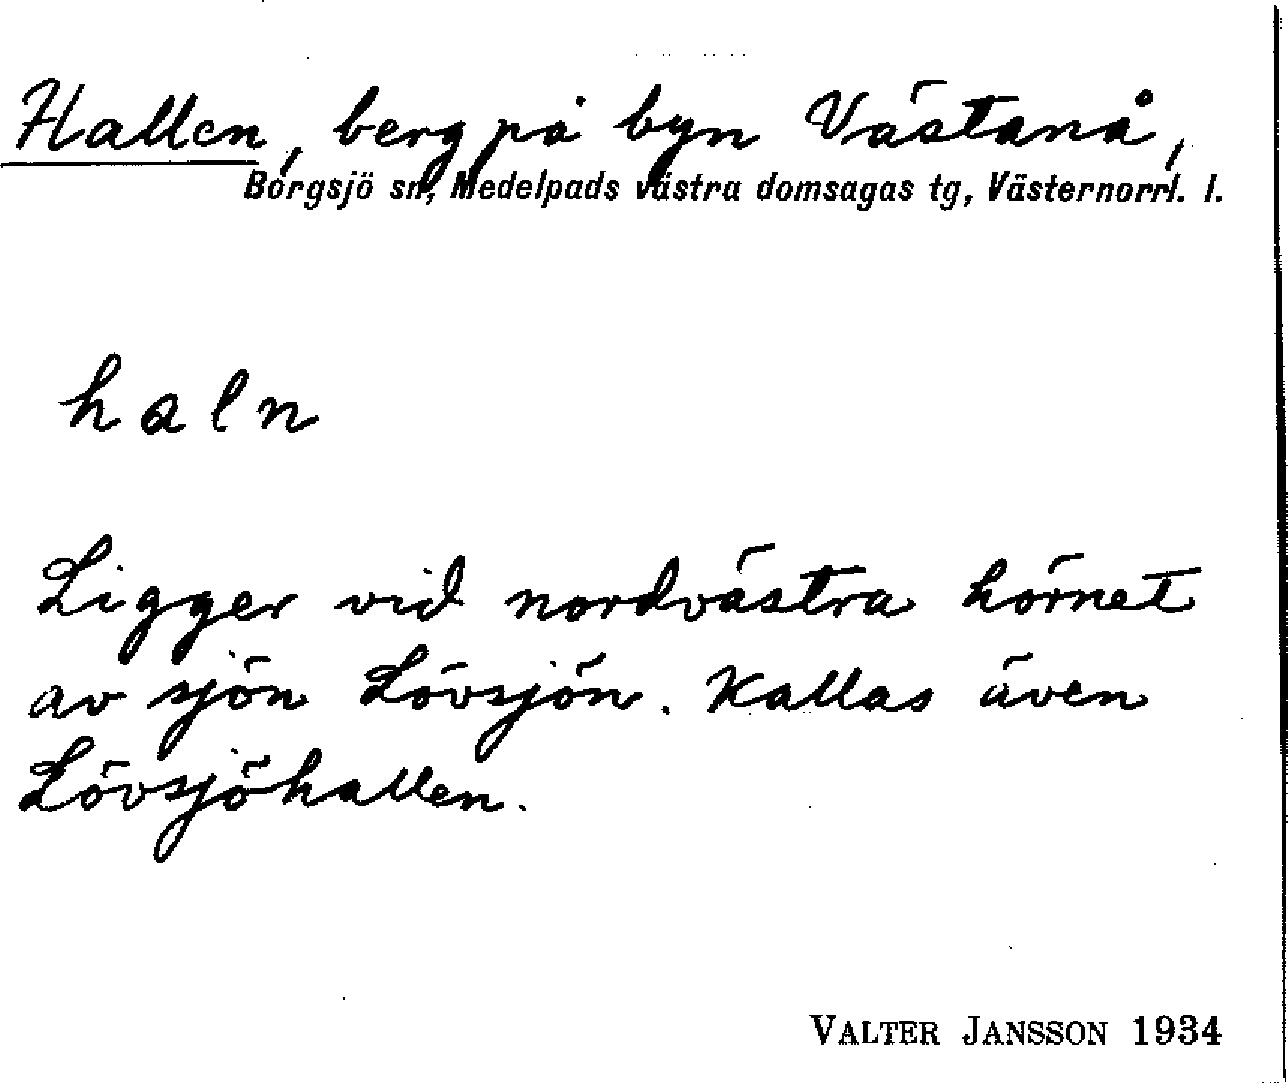 Hallen, berg på byn Västanå,
Borgsjö sn, Medelpads västra domsagas tg, Västernorrl. l.
haln
Ligger vid nordvästra hörnet
av sjön Lövsjön. Kallas även
Lövsjöhallen.
VALTER JANSSON 1934